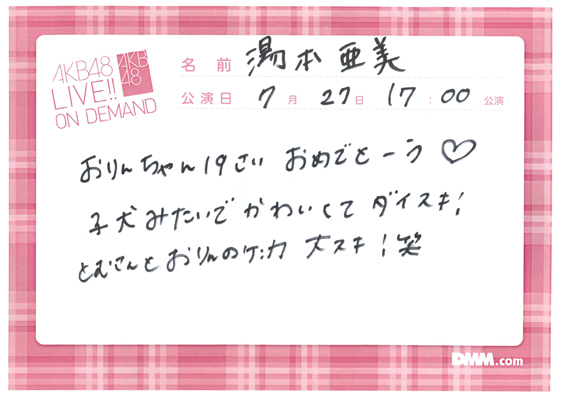 AKB48
LIVE!!
ON DEMAND
AKB
48
名前 湯本亜美
公演日 7月 27日 17:00 公演
おりんちゃん19さい おめでとーう♡
子犬みたいで かわいくて ダイスキ!
とむさんと おりんのケンカ 大スキ!笑
DMM.com